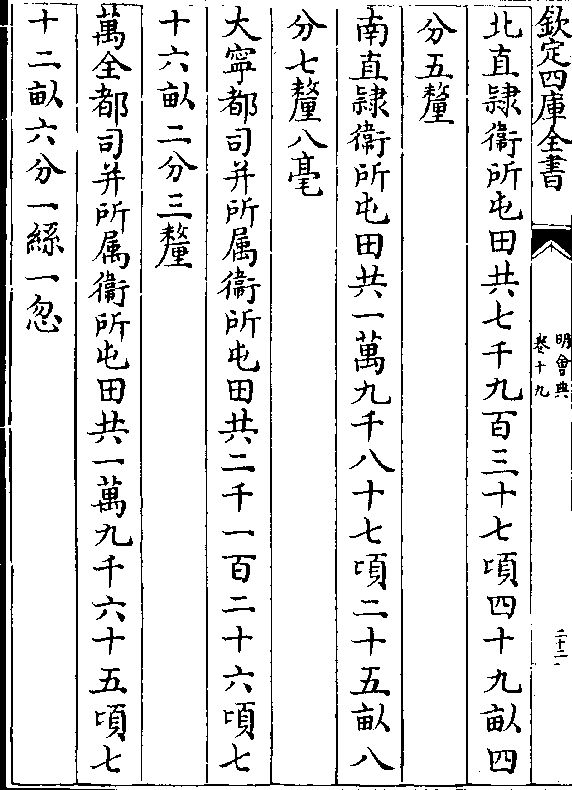 欽定四庫全書
明會典
卷十九
二十二
北直隸衛所屯田共七千九百三十七頃四十九畝四
分五釐
南直隸衛所屯田共一萬九千八十七頃二十五畝八
分七釐八毫
大寧都司并所属衛所屯田共二千一百二十六頃七
十六畝二分三釐
萬全都司并所属衛所屯田共一萬九千六十五頃七
十二畝六分一絲一忽